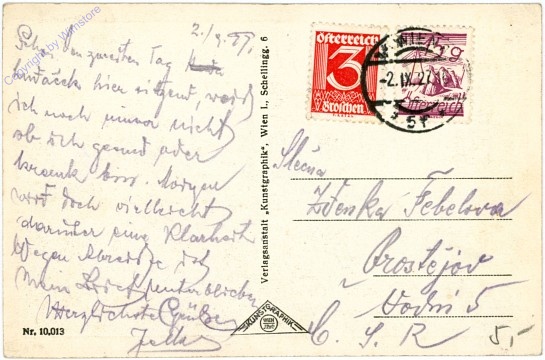 2./9. 27.
Schon den zweiten Tag
hier liegend, weiß
ich noch immer nicht
ob ich gesund oder
krank bin. Morgen
wird doch vielleicht
darüber eine Klarheit
Wegen Abreise ich
mein Brief unterblieben
Herzlichste Grüße
Nr. 10,013
Verlagsanstalt „Kunstgraphik", Wien I., Schellingg. 6
KUNSTGRAPHIK
WIEN
Österreich
3
Groschen
WIEN
-2.IX.27
Österreich
Slečna
Zdenka Febelova
Prostějov
Vodní 5
Č. S. R.
5,-
Copyright by Wamstore